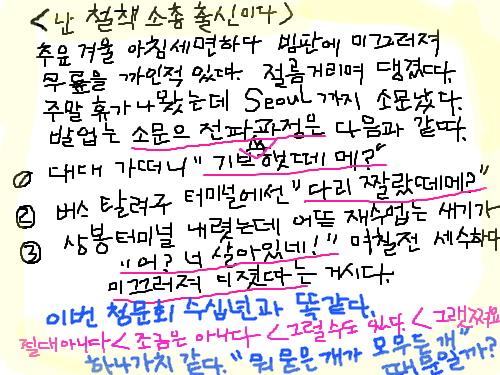 <난 철책 소총 출신이다>
추운 겨울 아침세면하다 빙판에 미끄러져
무릎을 까인적 있다. 절름거리며 댕겼다.
주말 휴가나왔는데 Seoul까지 소문났다.
발업는 소문으 전파과정은 다음과 같따.
① 대대 가떠니 "기브했떼메?"
② 버스 탈려구 터미널에선 "다리 짤랐떼메?"
③ 상봉터미널 내렸는데 어뜬 재수업는 새기가
"어? 너 살아있네!" 며칠전 세수하다
미끄러져 디졌다는 거시다.
이번 청문회 수십년과 똑같다.
절대아니다 < 조금은 아니다 < 그럴수도 있다. < 그랬쪄요
하나가치 같다. "뭐 묻은개가 모무두개"
때문일까?